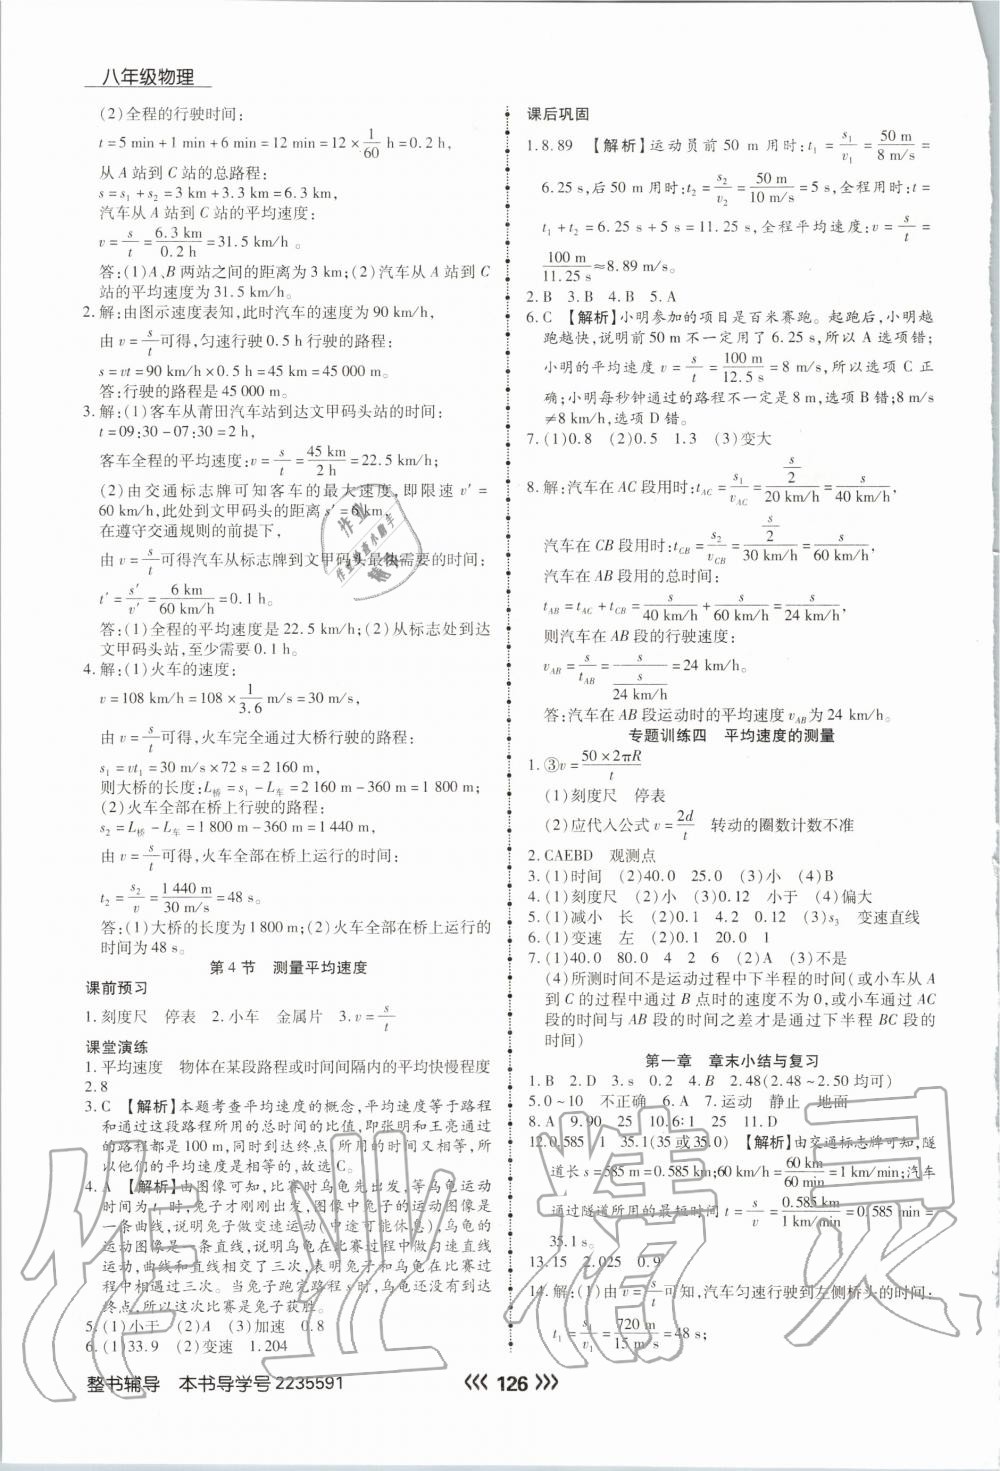 八年级物理
(2)全程的行驶时间:
t=5 min+1 min+6 min=12 min=12×1/60 h=0.2 h,
从A站到C站的总路程:
s=s₁+s₂=3 km+3.3 km=6.3 km,
汽车从A站到C站的平均速度:
v=s/t=6.3 km/0.2 h=31.5 km/h。
答:(1)A、B两站之间的距离为3 km;(2)汽车从A站到C
站的平均速度为31.5 km/h。
2.解:由图示速度表知,此时汽车的速度为90 km/h,
由v=s/t可得,匀速行驶0.5 h行驶的路程:
s=vt=90 km/h×0.5 h=45 km=45 000 m。
答:行驶的路程是45 000 m。
3.解:(1)客车从莆田汽车站到达文甲码头站的时间:
t=09:30-07:30=2 h,
客车全程的平均速度:v=s/t=45 km/2 h=22.5 km/h;
(2)由交通标志牌可知客车的最大速度,即限速v′=
60 km/h,此处到文甲码头的距离s′=6 km,
在遵守交通规则的前提下,
由v=s/t可得汽车从标志牌到文甲码头最快需要的时间:
t′=s′/v′=6 km/60 km/h=0.1 h。
答:(1)全程的平均速度是22.5 km/h;(2)从标志处到达
文甲码头站,至少需要0.1 h。
4.解:(1)火车的速度:
v=108 km/h=108×1/3.6 m/s=30 m/s,
由v=s/t可得,火车完全通过大桥行驶的路程:
s₁=vt₁=30 m/s×72 s=2 160 m,
则大桥的长度:L桥=s₁-L车=2 160 m-360 m=1 800 m;
(2)火车全部在桥上行驶的路程:
s₂=L桥-L车=1 800 m-360 m=1 440 m,
由v=s/t可得,火车全部在桥上运行的时间:
t₂=s₂/v=1 440 m/30 m/s=48 s。
答:(1)大桥的长度为1 800 m;(2)火车全部在桥上运行的
时间为48 s。
第4节 测量平均速度
课前预习
1.刻度尺 停表 2.小车 金属片 3.v=s/t
课堂演练
1.平均速度 物体在某段路程或时间间隔内的平均快慢程度
2.8
3.C 【解析】本题考查平均速度的概念,平均速度等于路程
和通过这段路程所用的总时间的比值,即张明和王亮通过
的路程都是100 m,同时到达终点,所用的时间又相等,所
以他们的平均速度是相等的,故选C。
4.A 【解析】由图像可知,比赛时乌龟先出发,等乌龟运动
时间为t₁时,兔子才刚刚出发,图像中兔子的运动图像是
一条曲线,说明兔子做变速运动(中途可能休息),乌龟的
运动图像是一条直线,说明乌龟在比赛中做匀速直线
运动,曲线和直线相交了三次,说明比赛过程中兔子和乌
龟相遇过三次。当兔子跑完路程s时,乌龟还没有到达
终点,所以这次比赛是兔子获胜。
5.(1)小于 (2)A (3)加速 0.8
6.(1)33.9 (2)变速 1.204
课后巩固
1.8.89 【解析】运动员前50 m用时:t₁=s₁/v₁=50 m/8 m/s=
6.25 s,后50 m用时:t₂=s₂/v₂=50 m/10 m/s=5 s,全程用时:t=
t₁+t₂=6.25 s+5 s=11.25 s,全程平均速度:v=s/t=
100 m/11.25 s≈8.89 m/s。
2.B 3.B 4.B 5.A
6.C 【解析】小明参加的项目是百米赛跑。起跑后,小明越
跑越快,说明前50 m不一定用了6.25 s,所以A选项错;
小明的平均速度v=s/t=100 m/12.5 s=8 m/s,所以选项C正
确;小明每秒钟通过的路程不一定是8 m,选项B错;8 m/s
≠8 km/h,选项D错。
7.(1)0.8 (2)0.5 1.3 (3)变大
8.解:汽车在AC段用时:tAC=s₁/vAC=(s/2)/20 km/h=s/40 km/h,
汽车在CB段用时:tCB=s₂/vCB=(s/2)/30 km/h=s/60 km/h,
汽车在AB段用的总时间:
tAB=tAC+tCB=s/40 km/h+s/60 km/h=s/24 km/h,
则汽车在AB段的行驶速度:
vAB=s/tAB=s/(s/24 km/h)=24 km/h。
答:汽车在AB段运动时的平均速度vAB为24 km/h。
专题训练四 平均速度的测量
1.③v=50×2πR/t
(1)刻度尺 停表
(2)应代入公式v=2d/t 转动的圈数计数不准
2.CAEBD 观测点
3.(1)时间 (2)40.0 25.0 (3)小 (4)B
4.(1)刻度尺 (2)小 (3)0.12 小于 (4)偏大
5.(1)减小 长 (2)0.1 4.2 0.12 (3)s₃ 变速直线
6.(1)变速 左 (2)0.1 20.0 1
7.(1)40.0 80.0 4 2 6 (2)A (3)不是
(4)所测时间不是运动过程中下半程的时间(或小车从A
到C的过程中通过B点时的速度不为0,或小车通过AC
段的时间与AB段的时间之差才是通过下半程BC段的
时间)
第一章 章末小结与复习
1.B 2.D 3.s 0.2 4.B 2.48(2.48~2.50均可)
5.0~10 不正确 6.A 7.运动 静止 地面
8.A 9.90 25 10.6:1 25 11.D
12.0.585 1 35.1(35或35.0) 【解析】由交通标志牌可知,隧
道长s=585 m=0.585 km;60 km/h=60 km/60 min=1 km/min;汽车
通过隧道所用的最短时间t=s/v=0.585 km/1 km/min=0.585 min=
35.1 s。
13.15 2.025 0.9
14.解:(1)由v=s/t可得,汽车匀速行驶到左侧桥头的时间:
t₁=s₁/v₁=720 m/15 m/s=48 s;
整书辅导 本书导学号2235591
《《 126 》》
作业精灵